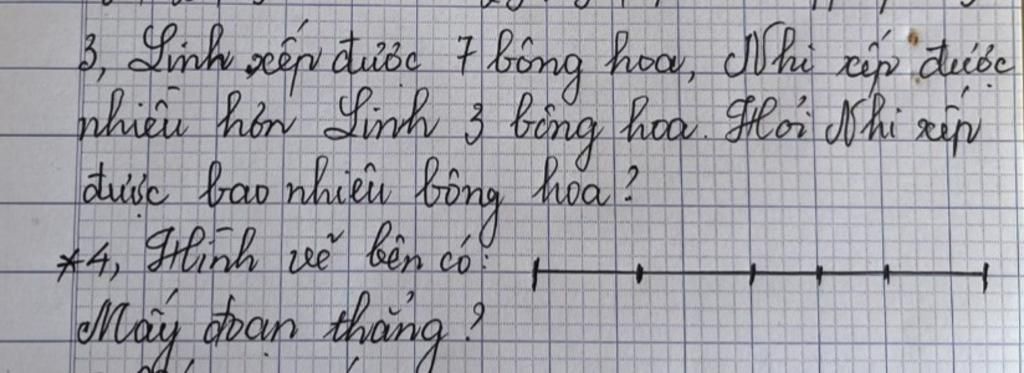 3, Linh xếp được 7 bông hoa, Nhi xếp được
nhiều hơn Linh 3 bông hoa. Hỏi Nhi xếp
được bao nhiêu bông hoa?
*4, Hình vẽ bên có:
Mấy đoạn thẳng?